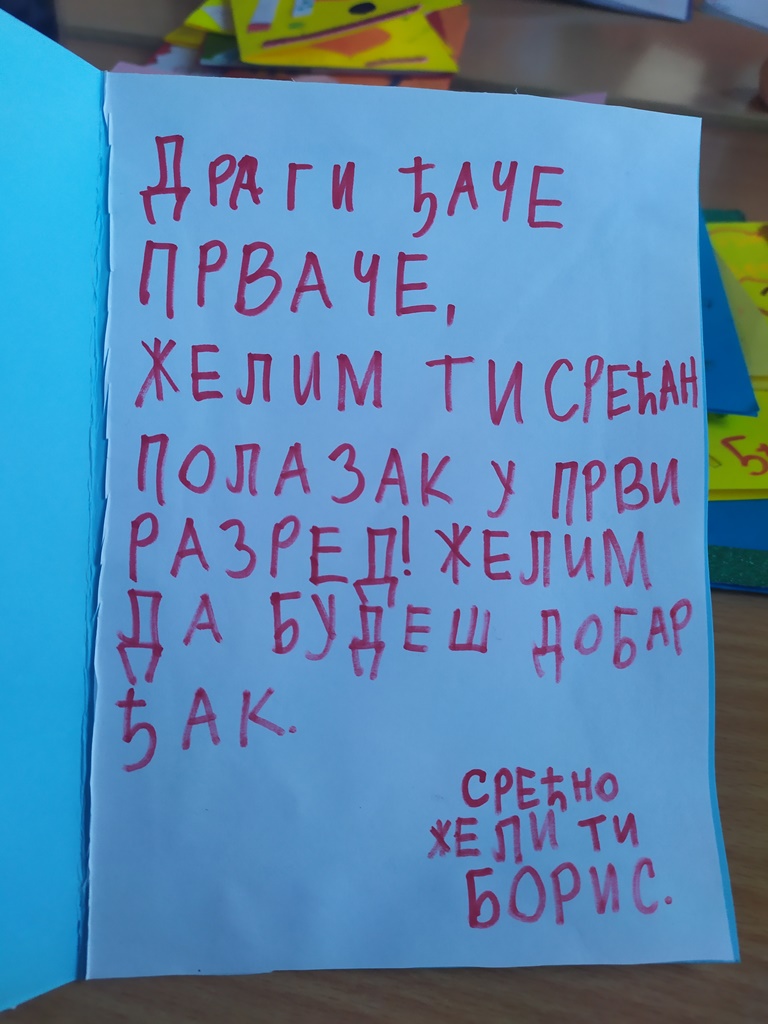 ДРАГИ ЂАЧЕ
ПРВАЧЕ,
ЖЕЛИМ ТИ СРЕЋАН
ПОЛАЗАК У ПРВИ
РАЗРЕД! ЖЕЛИМ
ДА БУДЕШ ДОБАР
ЂАК.
СРЕЋНО
ЖЕЛИ ТИ
БОРИС.